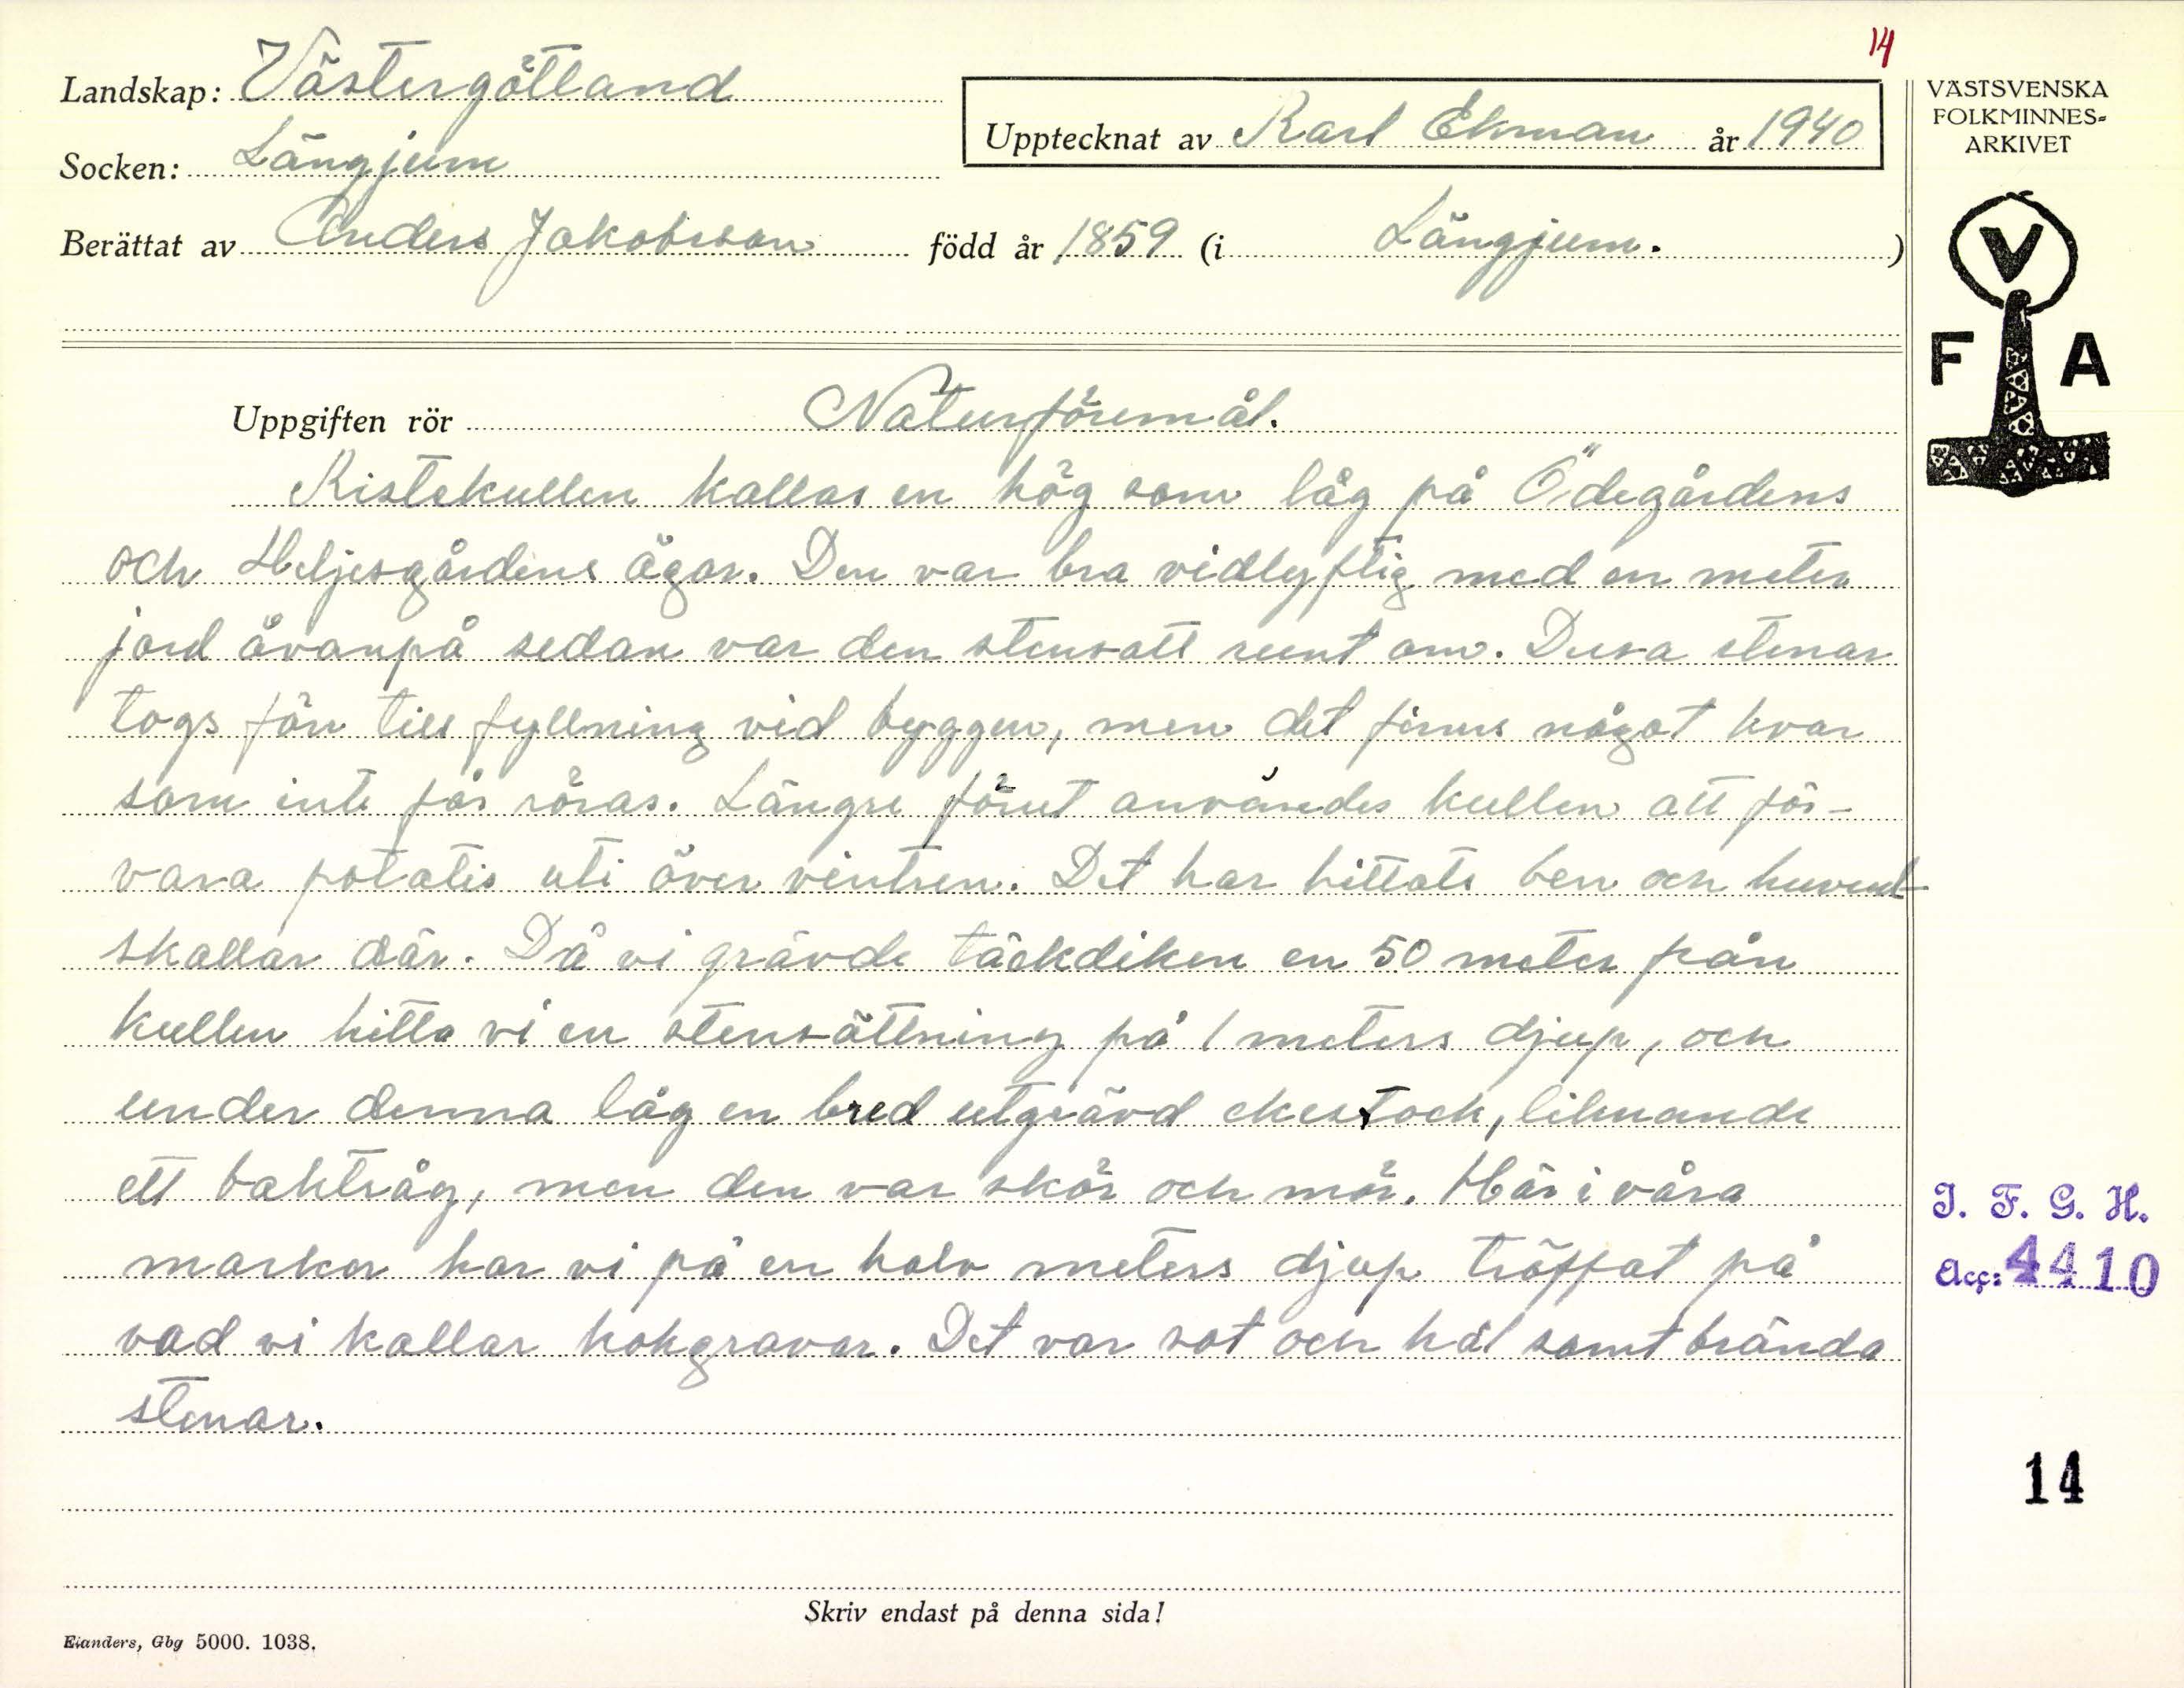 14
Landskap: Västergötland
Upptecknat av Karl Ekman år 1940
Socken: Längjum
Berättat av Anders Jakobsson född år 1859 (i Längjum.)
VÄSTSVENSKA
FOLKMINNES-
ARKIVET
V
F A
Uppgiften rör Naturföremål.
Ristekullen kallas en hög som låg på Ödegårdens
och Heljesgårdens ägor. Den var bra vidlyftig med en meter
jord åvanpå sedan var den stensatt runt om. Dessa stenar
togs för till fyllning vid byggen, men det finns något kvar
som inte får röras. Längre förut användes kullen att för-
vara potatis uti över vintren. Det har hittats ben och huvud-
skallar där. Då vi grävde täckdiken en 50 meter från
kullen hitta vi en stensättning på 1 meters djup, och
under denna låg en bred utgrävd ekestock, liknande
ett baktråg, men den var skör och mör. Här i våra
marker har vi på en halv meters djup träffat på
vad vi kallar kokgravar. Det var sot och kål samt brända
stenar.
I. F. G. H.
Acc: 4410
14
Skriv endast på denna sida!
Elanders, Gbg 5000. 1038.